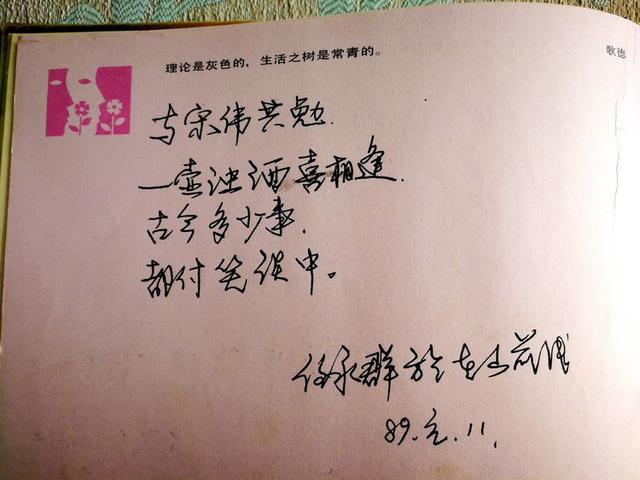 理论是灰色的，生活之树是常青的。
歌德
与宋伟共勉.
一壶浊酒喜相逢.
古今多少事.
都付笑谈中。
任永群於
89.元.11.